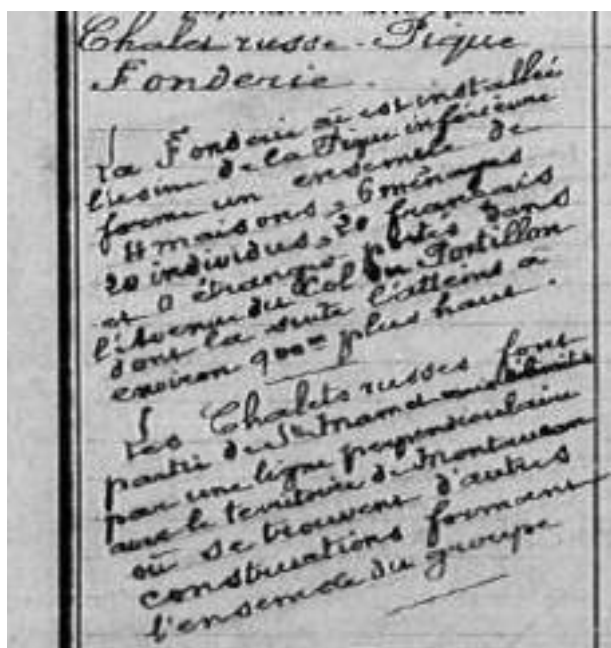 Chalet russe - Pique
Fonderie.
La Fonderie où est installée
l'usine de la Pique inférieure
forme un ensemble de
4 maisons, 6 ménages
20 individus, 20 français
et 0 étrangers, situés dans
l'Avenue du Col du Portillon
dont la route l'atteins à
environ 900m plus haut.
Les Chalets russes font
partie de St Mamet
par une ligne perpendiculaire
avec le territoire de Montauban
où se trouvent d'autres
constructions formant
l'ensemble du groupe